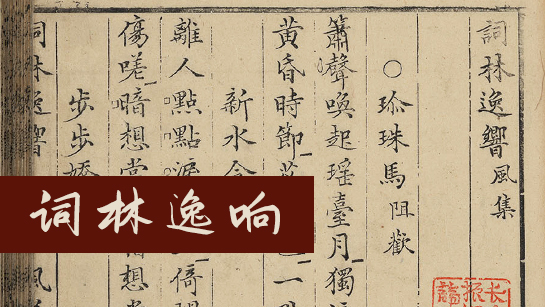 詞林逸響風集
○珍珠馬阻歡
簫聲喚起瑤臺月獨
黃昏時節
一
新水令
離人點點淚
倚
傷嗟暗想當
想
步步嬌
詞林逸響
风
词林逸响